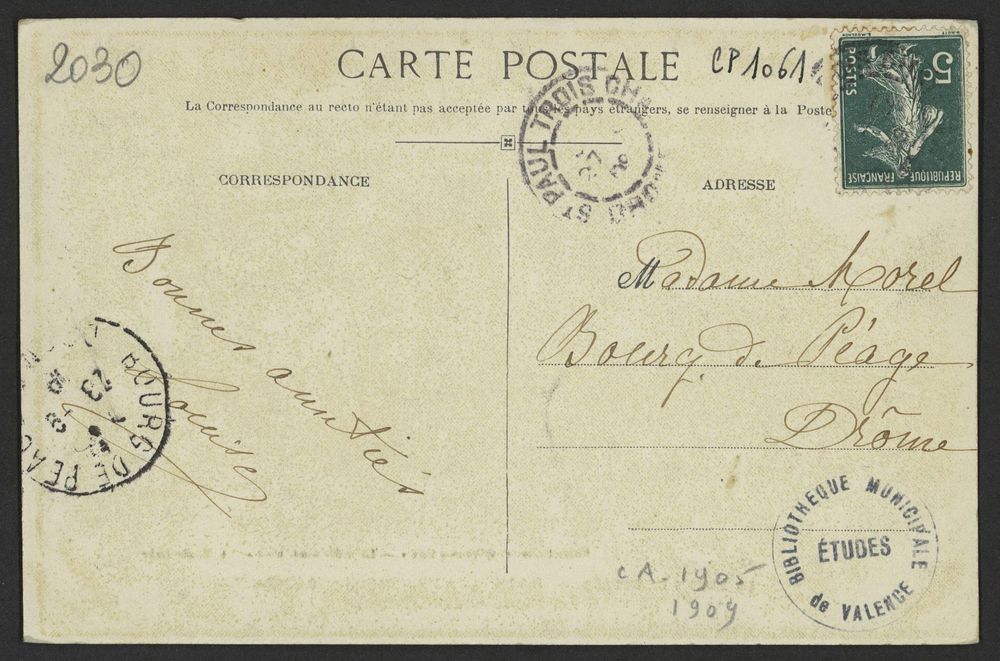 2030
CARTE POSTALE
CP1061
La Correspondance au recto n'étant pas acceptée par tous les pays étrangers, se renseigner à la Poste
CORRESPONDANCE
ADRESSE
5c
POSTES
REPUBLIQUE FRANÇAISE
ST PAUL TROIS CH
Bonnes amitiés
Louise
Madame Morel
Bourg de Péage
Drôme
BOURG DE PEAG
23
BIBLIOTHEQUE MUNICIPALE
ÉTUDES
de VALENCE
CA. 1905
1909